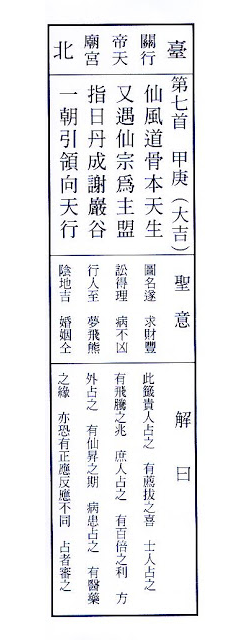 臺北
關帝廟
行天宮
第七首 甲庚(大吉)
仙風道骨本天生
又遇仙宗爲主盟
指日丹成謝巖谷
一朝引領向天行
聖意
圖名遂 求財豐
訟得理 病不凶
行人至 夢飛熊
陰地吉 婚姻仝
解曰
此籤貴人占之 有薦拔之喜 士人占之
有飛騰之兆 庶人占之 有百倍之利 方
外占之 有仙昇之期 病患占之 有醫藥
之緣 亦恐有正應反應不同 占者審之